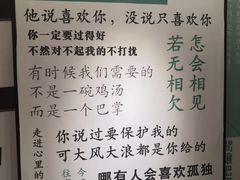 他说喜欢你，没说只喜欢你
你一定要过得好
不然对不起我的不打扰
有时候我们需要的
不是一碗鸡汤
而是一个巴掌
怎会相见
若无相欠
你说过要保护我的
可大风大浪都是你给的
走进心里的
往
今
哪有人会喜欢孤独